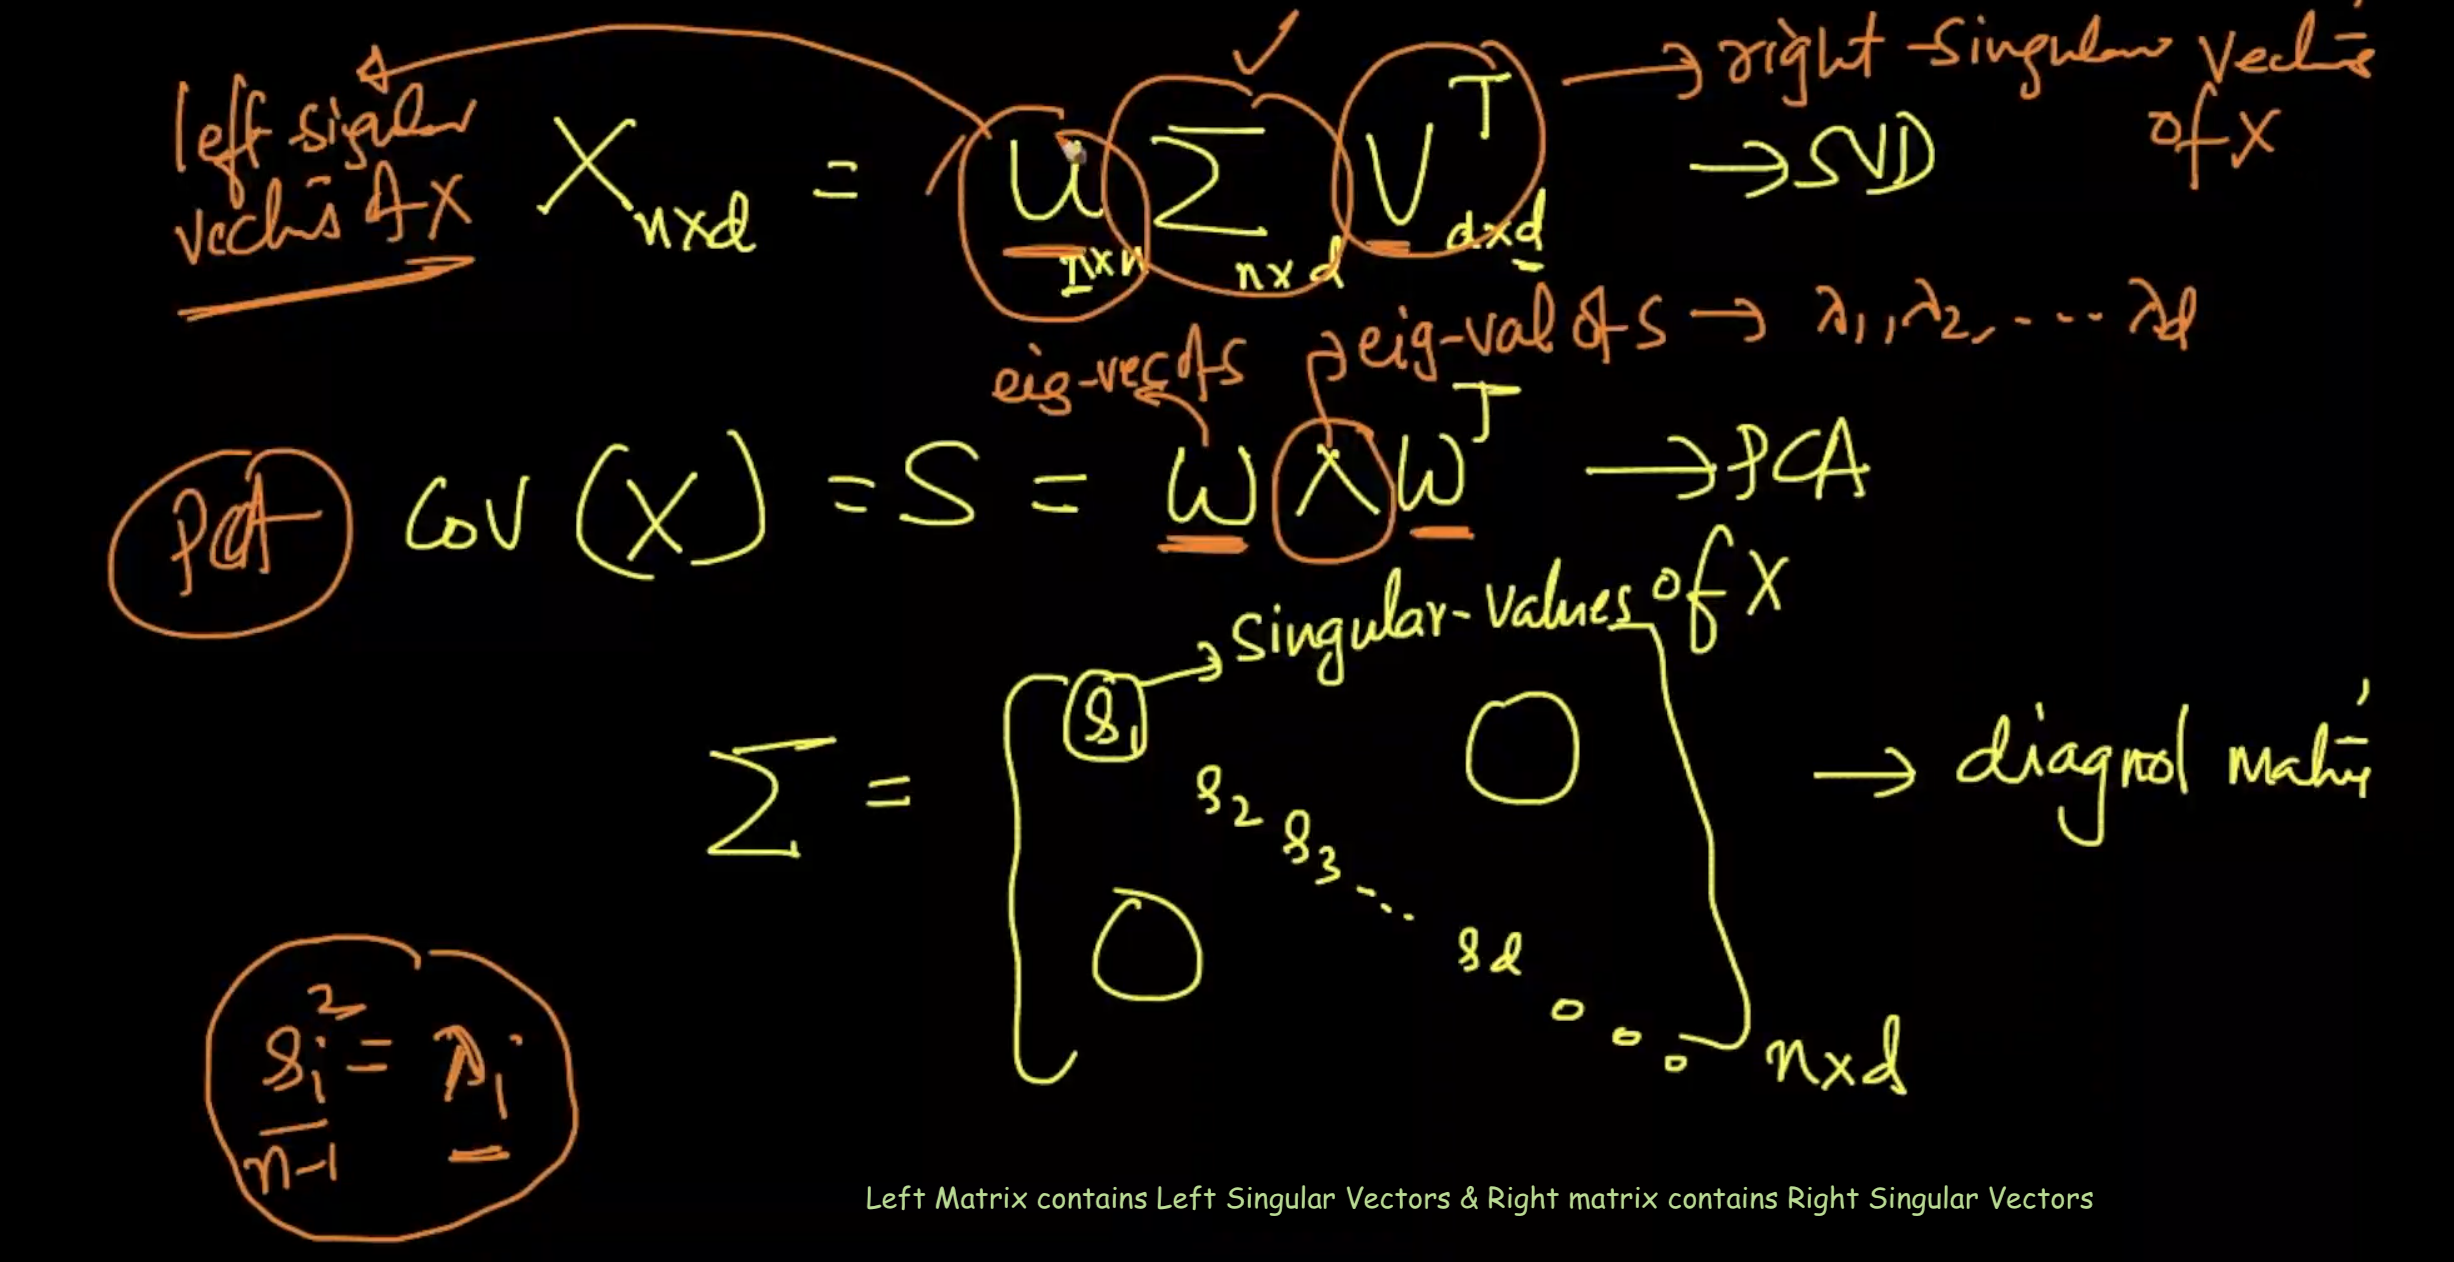 left singular vectors of X
X n×d = U n×n Σ n×d V^T d×d → SVD
→ right-singular vectors of X
eig-vec of S
eig-val of S → λ1, λ2, ---- λd
PCA
Cov (X) = S = W Λ W^T → PCA
→ Singular-values of X
Σ = [ s1 s2 s3 ... sd 0 0 0 0 0 ] n×d → diagnol matrix
si^2 / n-1 = λi
Left Matrix contains Left Singular Vectors & Right matrix contains Right Singular Vectors